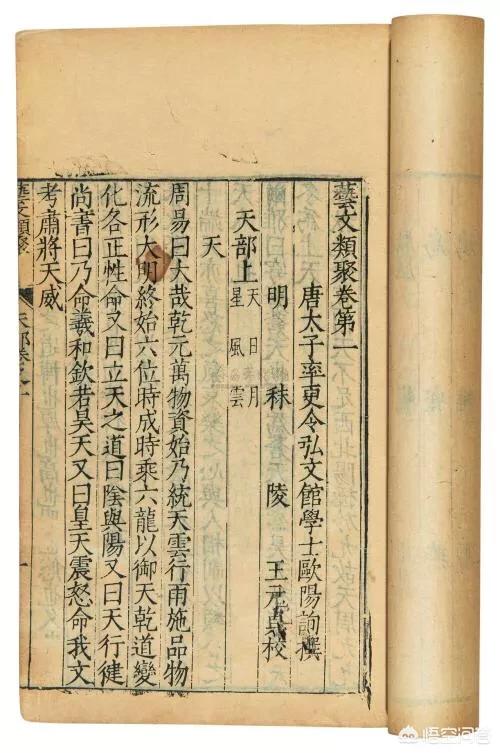 藝文類聚卷第一
唐太子率更令弘文館學士歐陽詢撰
明　秣　陵　王元貞校
天部上　天　日　月
星　風　雲
天
周易曰大哉乾元萬物資始乃統天雲行雨施品物
流形大明終始六位時成時乘六龍以御天乾道變
化各正性命又曰立天之道曰陰與陽又曰天行健
尚書曰乃命羲和欽若昊天又曰皇天震怒命我文
考肅將天威
藝文類聚
天部卷之一
一
悟空问答